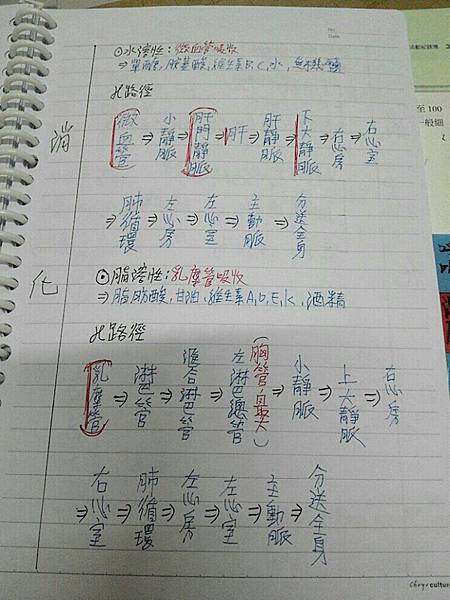 No.
Date
⊙水溶性:微血管吸收
⇒單醣,胺基酸,維生素B,C,水,無機鹽
此路徑
消
微血管⇒小靜脈⇒肝門靜脈⇒肝⇒肝靜脈⇒下大靜脈⇒右心房⇒右心室
⇒肺循環⇒左心房⇒左心室⇒主動脈⇒分送全身
化
⊙脂溶性:乳糜管吸收
⇒脂肪酸,甘油,維生素A,D,E,K,酒精
此路徑
乳糜管⇒淋巴管⇒匯合淋巴管⇒左淋巴總管(胸管,最大)⇒小靜脈⇒上大靜脈⇒右心房
⇒右心室⇒肺循環⇒左心房⇒左心室⇒主動脈⇒分送全身
至 100
一般細
culture